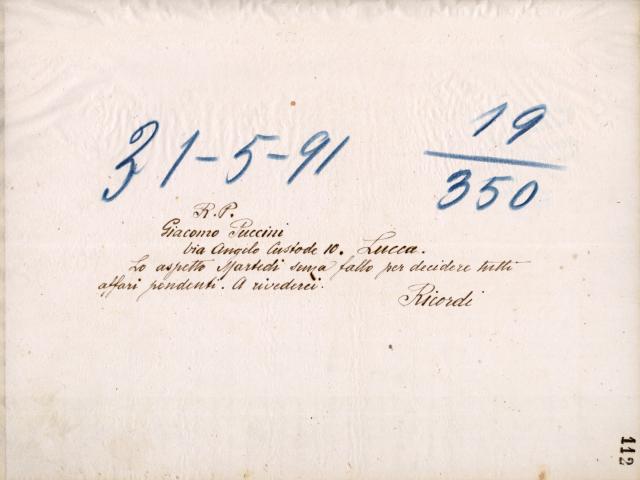 31-5-91
19
350
R. P.
Giacomo Puccini
Via Angelo Custode 10. Lucca.
Lo aspetto Martedì senza fallo per decidere tutti
affari pendenti. A rivederci.
Ricordi
112